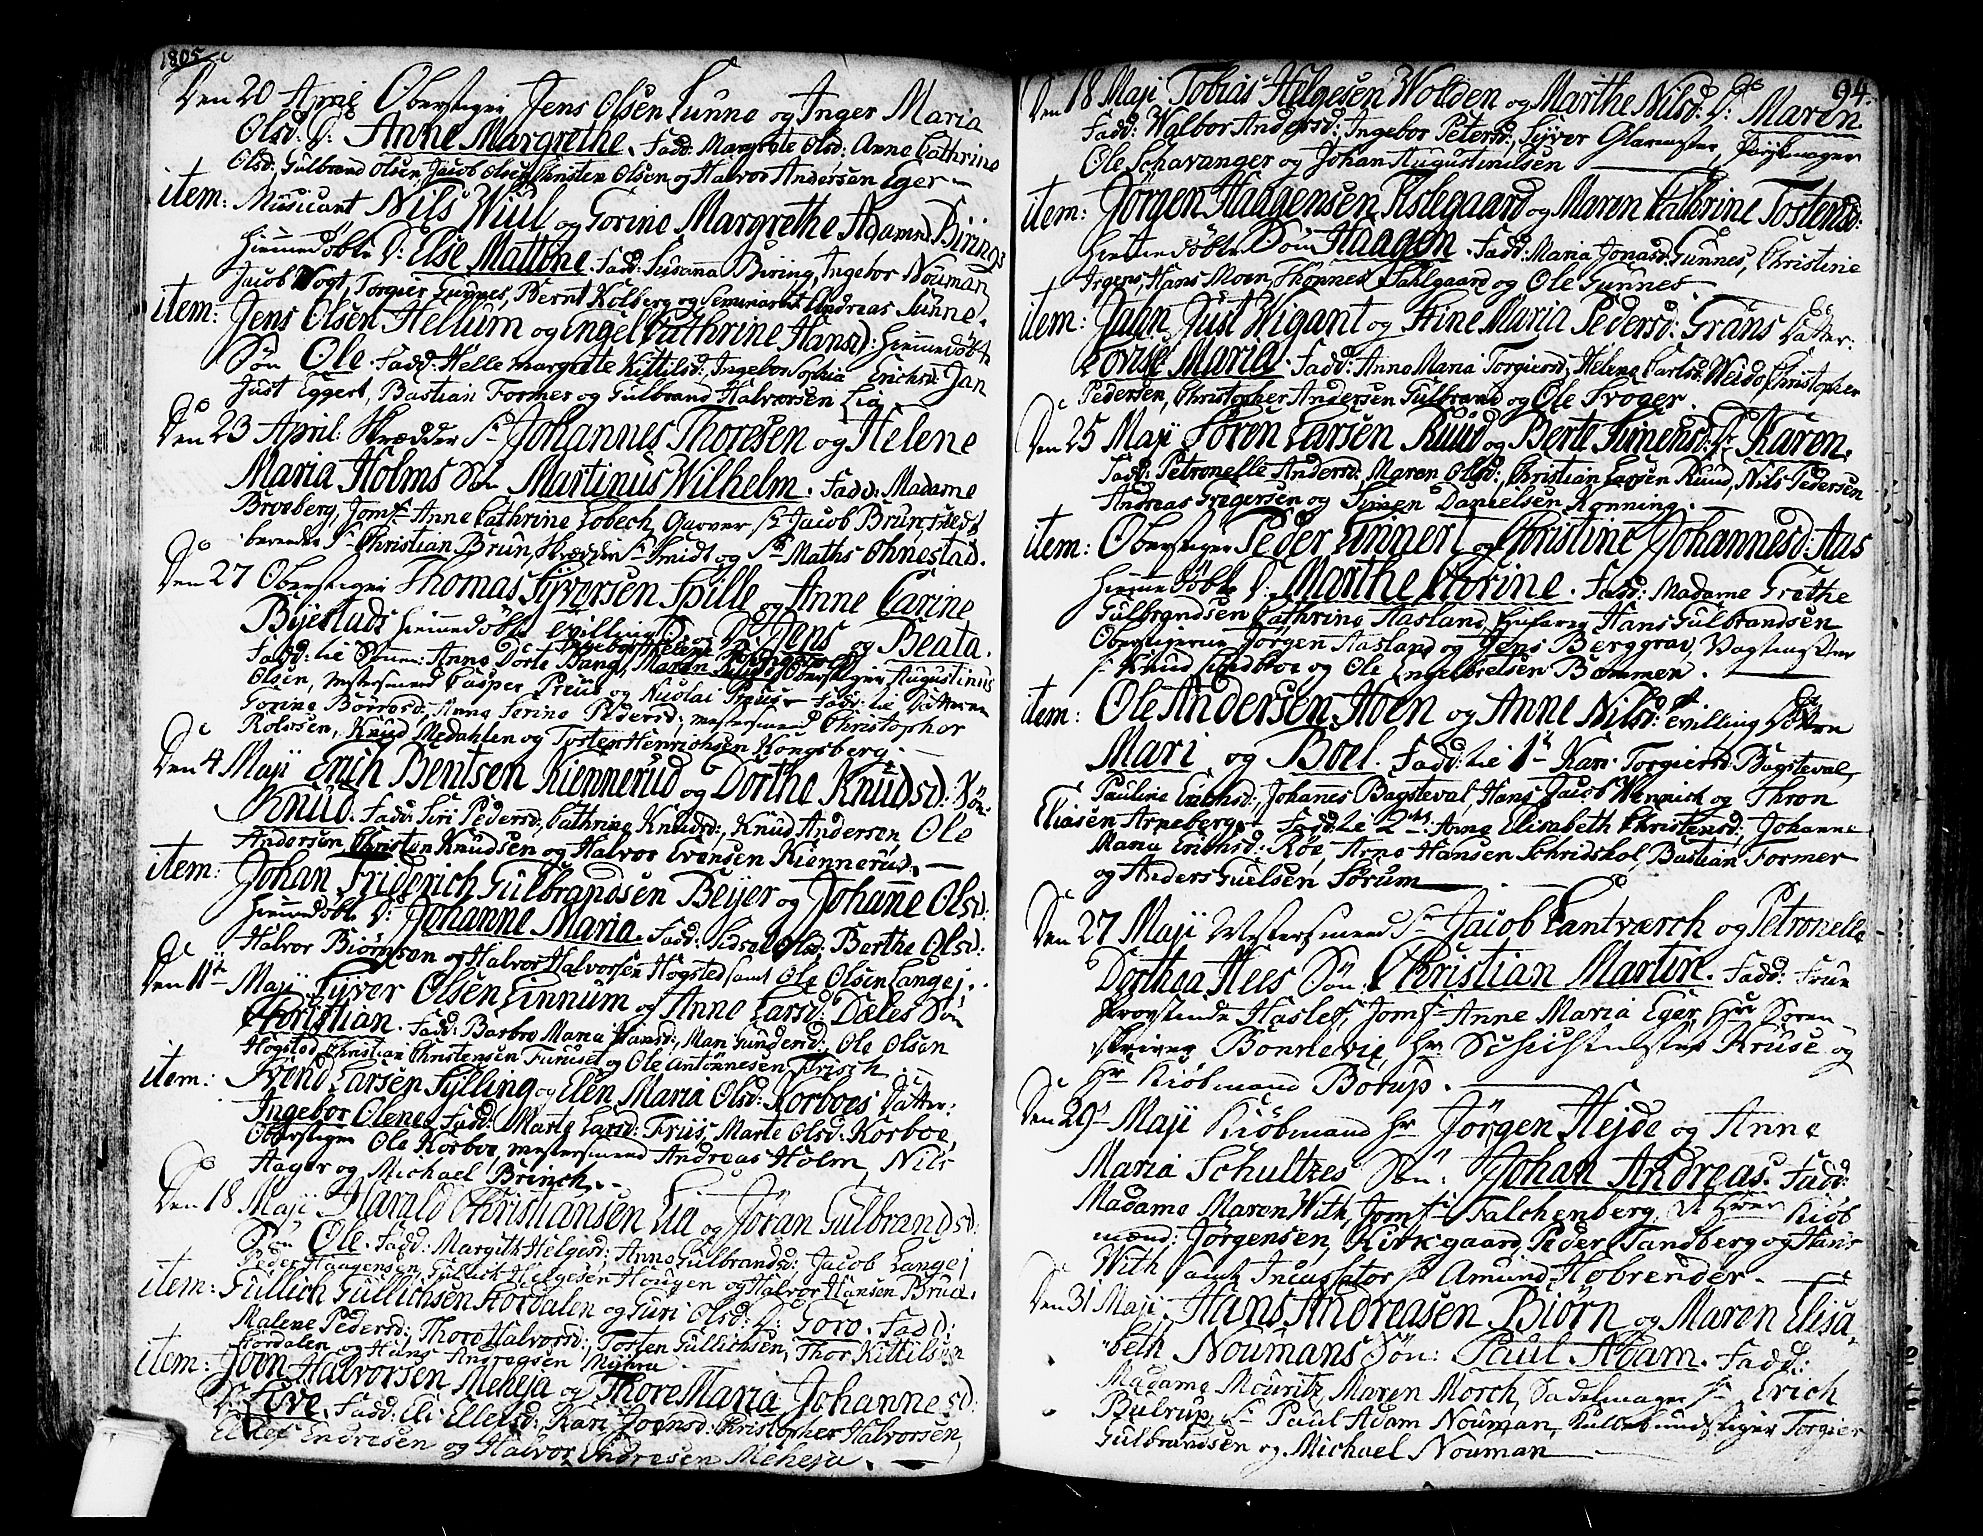 1805
Den 20 April Oberstiger Jens Olsen Lunne og Inger Maria
Olsd: D: Anne Margrethe. Fadd: Margrete Olsd: Anne Cathrine
Olsd: Gulbrand Olsen, Jacob Olsen, Olsen og Halvor Andersen Eger
item: Musicant Nils Wiul og Gorine Margrethe Adamsd: Birings
hiemmedøbte D: Else Matthe. Fadd: Susanna Biring, Ingebor Nouman
Jacob Vogt, Torgier Gunnes, Bernt Kolberg og Seminarist Andreas Sunne.
item: Jens Olsen Hellum og Engel Cathrine Hansd: hiemmedøbte
Søn Ole. Fadd: Helle Margrete Kittilsd: Ingebor Sophia Erichsd: Jan
Just Eggert, Bastian Former og Gulbrand Halvorsen Lia.
Den 23 April: Skrædder Sr Johannes Thoresen og Helene
Maria Holms Søn Martinus Wilhelm. Fadd: Madame
Broeberg, Jomf: Anne Cathrine Lobech, Garver Sr Jacob Brun,
bereder Sr Christian Brun, Skrædder Sr Smidt og Sr Maths Ohnestad.
Den 27 Oberstiger Thomas Syversen Spille og Anne Carine
Beyestads hiemmedøbte Tvillinger Jens og Beata.
Fadd: til Sønnen: Anne Dorte Bang, Maren Oberstiger Augustinus
Olsen, Mestersmend Casper Preus og Nicolai Preus Fadd: til Datteren
Gorine Borresd:, Anne Serine Pedersd:, Mestersmend Christopher
Rolvsen, Knud Medahlen og Tosten Henrichsen Kongsberg.
Den 4 Maji Erich Bentsen Kiennerud og Dorthe Knudsd: Søn
Knud. Fadd: Siri Pedersd:, Cathrine Knudsd:, Knud Andersen, Ole
Andersen, Christen Knudsen og Halvor Evensen Kiennerud.
item: Johan Friderich Gulbrandsen Beyer og Johanne Olsd:
hiemmedøbte D: Johanne Maria. Fadd: Sidsel Olsd: Berthe Olsd:
Halvor Biørnsen og Halvor Halvorsen Hogsted samt Ole Olsen Langej.
Den 11te Maji Syver Olsen Linnum og Anne Larsd: Dæles Søn
Christian. Fadd: Barbro Maria Hansd:, Mari Gunderd:, Ole Olsen
Hogsted, Christian Christensen Funusel og Ole Antonnesen Frisch
item: Svend Larsen Sylling og Elen Maria Olsd: Korboes Datter:
Ingebor Olene. Fadd: Marte Larsd: Frus, Marte Olsd: Korboe,
Oberstiger Ole Korboe, Mestersmend Andreas Holm, Nils
Hager og Michael Brinch.
Den 18 Maji Harald Christiansen Lia og Jøran Gulbrandsd:
Søn Ole. Fadd: Margith Helgesd:, Anne Gulbrandsd: Jacob Langej
Peder Haagensen, Gulich Helgesen Hougen og Halvor Hansen Brud.
item: Gullich Gullichsen Stordalen og Guri Olsd: D: Goro. Fadd:
Malene Pedersd:, Thore Halvorsd:, Tosten Gullichsen, Thor Kittilsen
Stordalen og Hans Andresen Myhra
item: Joen Halvorsen Meheja og Thore Maria Johannesd:
D: Live. Fadd: Eli Ellefsd: Kari Joensd: Christopher Halvorsen,
Ellef Endresen og Halvor Endresen Meheja.
94.
Den 18 Maji Tobias Helgesen Wolden og Marthe Nilsd: D: Maren
Fadd: Walbor Andersd: Ingebor Petersd: Syver Glarmester,
Ole Schavanger og Johan Augustinilsen
item: Jørgen Haagensen Fislegaard og Maren Cathrine Tostensd:
hiemmedøbte Søn Haagen. Fadd: Maria Jonasd: Gunnes, Christine
Irgens, Hans Moen, Thønnes Dahlgaard og Ole Gunnes.
item: Jahn Just Wigant og Stine Maria Pedersd: Grans Datter:
Lovise Maria. Fadd: Anne Maria Torgiersd:, Helene Carlsd: Weido, Christopher
Pedersen, Christopher Andersen Gulbrand og Ole Svoger.
Den 25 Maji Søren Larsen Ruud og Berte Simensd: Dr Karen.
Fadd: Petronelle Andersd: Maren Olsd: Christian Larsen Ruud, Nils Pedersen
Andreas Gregersen og Simen Danielsen Konning.
item: Oberstiger Peder Linnert og Christine Johannesd: Aas
hiemmedøbte D: Marthe Cthrine. Fadd: Madame Grethe
Gulbrandsen, Cathrine Aasland, Hans Gulbrandsen
Oberstigerne Jørgen Aasland og Jens Berggrav, Vagtmester
Sr Knud og Ole Engelbretsen Bommen.
item: Ole Andersen Hoen og Anne Nilsd: Tvilling Døttre
Mari og Boel. Fadd: til 1te Kari Torgiersd: Bagsteval,
Pauline Erichsd:, Johannes Bagsteval, Hans Jacob Wennich og Thron
Eliasen Arneberg. Fadd: til 2den: Anne Elisabeth Christensd:, Johanne
Maria Erichsd: Roe, Arne Hansen Schridskol, Bastian Former
og Anders Guelsen Sørum
Den 27 Maji Mestersmend Sr Jacob Lantværch og Petronelle
Dorthea Hees Søn Christian Martin. Fadd: Frue
Provstinde Haslef, Jomf: Anne Maria Eger, Hr Soren-
skriver Bonnevie, Hr Schichtmester Kruse og
Hr Kiøbmand Borup.
Den 29de Maji Kiøbmand Hr Jørgen Hejde og Anne
Maria Schultzes Søn: Johan Andreas. Fadd:
Madame Maren With, Jomfr Falchenberg, Kiøb
mænd: Jørgensen, Kirkgaard, Peder Tandberg og Hans
With samt Incassator Sr Amund Høbrender.
Den 31 Maji: Hans Andreasen Biørn og Maren Elisa-
beth Noumans Søn: Paul Adam. Fadd:
Madame Mouritz, Maren Morch, Sadelmager Sr Erich
Bulrup, Sr Paul Adam Nouman, Torgier
Gulbrandsen og Michael Nouman